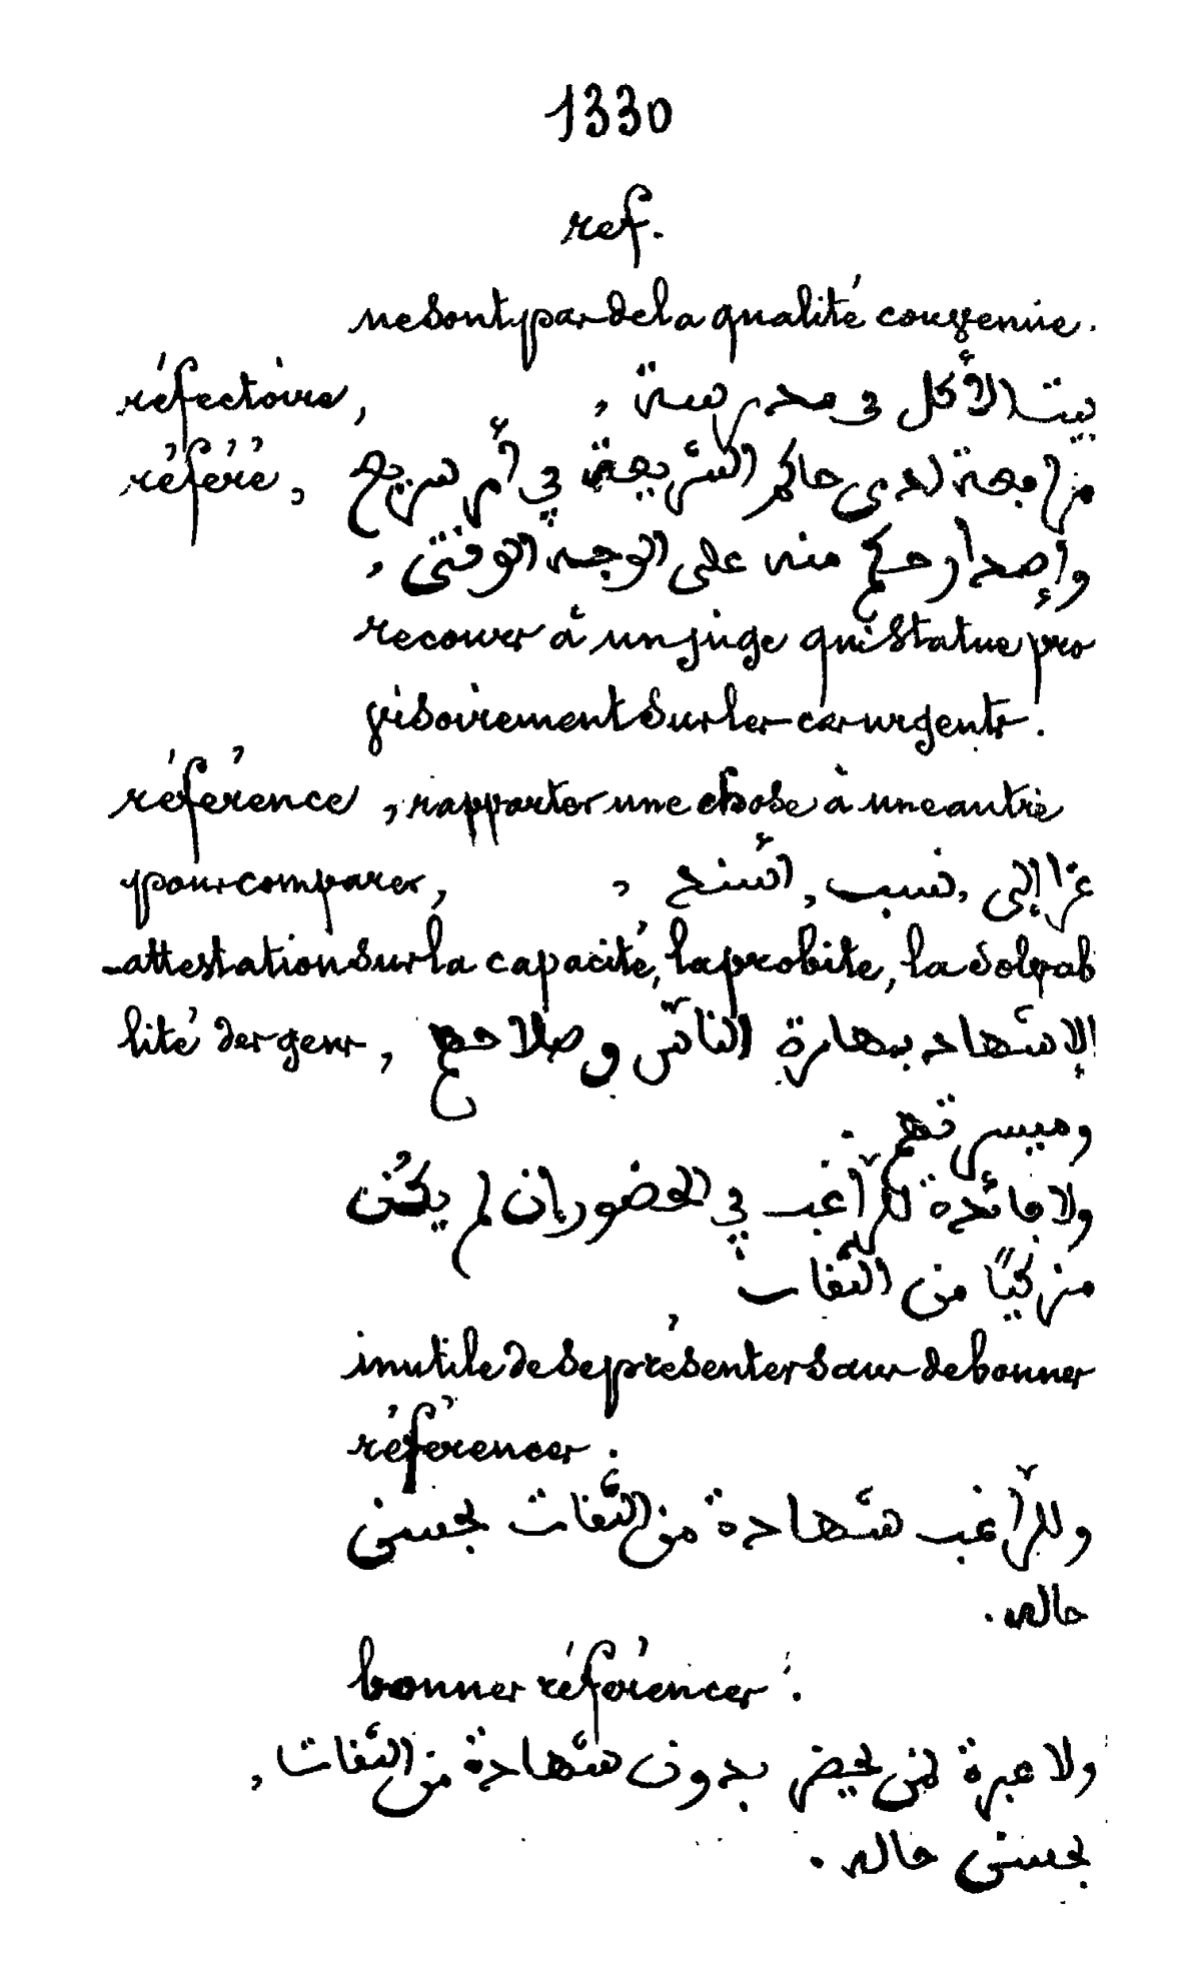 1330
ref.
ne sont pas de la qualité convenue.
réfectoire, بيت الأكل في مدرسة ,
référé, مرافعة لدى حاكم الشريعة في أمر سريع
وإصدار حكم منه على الوجه الوقتي ,
recours à un juge qui statue pro
visoirement sur les cas urgents.
référence, rapporter une chose à une autre
pour comparer, عزا إلى , نسب , أسند ,
-attestation sur la capacité, la probité, la solvab
lité des gens, الإشهاد بمهارة النّاس وصلاحهم
وميسرتهم .
ولا فائدة للرّاغب في الحضور إن لم يكُن
مزكيًّا من الثّقات
inutile de se présenter sans de bonnes
références.
وللرّاغب شهادة من الثّقات بحسن
حاله .
bonnes références.
ولا عبرة لمن يحضر بدون شهادة من الثّقات ,
بحسن حاله .